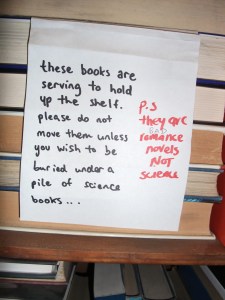 these books are
serving to hold
up the shelf.
please do not
move them unless
you wish to be
buried under a
pile of science
books...
P.S
they are
BAD
romance
novels
NOT
science